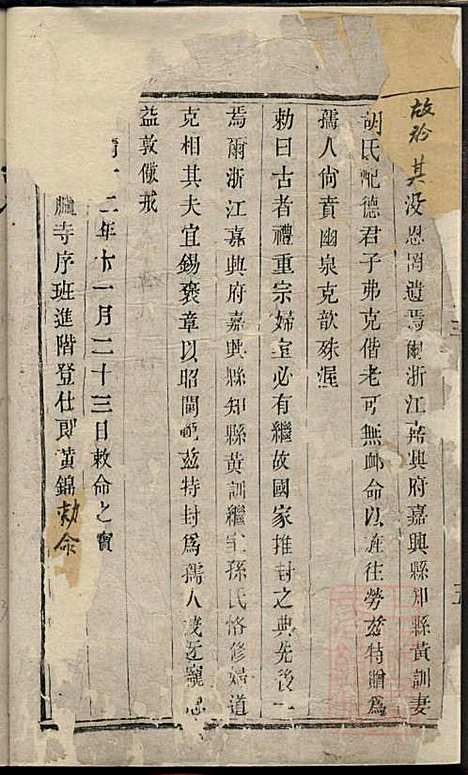 故於其没恩罔遺焉爾浙江嘉興府嘉興縣知縣黃訓妻
胡氏配德君子弗克偕老可無卹命以旌往勞玆特贈爲
孺人尙賁幽泉克歆殊渥
勅曰古者禮重宗婦室必有繼故國家推封之典先後一
焉爾浙江嘉興府嘉興縣知縣黃訓繼室孫氏恪修婦道
克相其夫宜錫褒章以昭閫範玆特封爲孺人茂迓寵
益敦儆戒
十二年十一月二十三日敕命之寶
臚寺序班進階登仕郎黃錦勅命